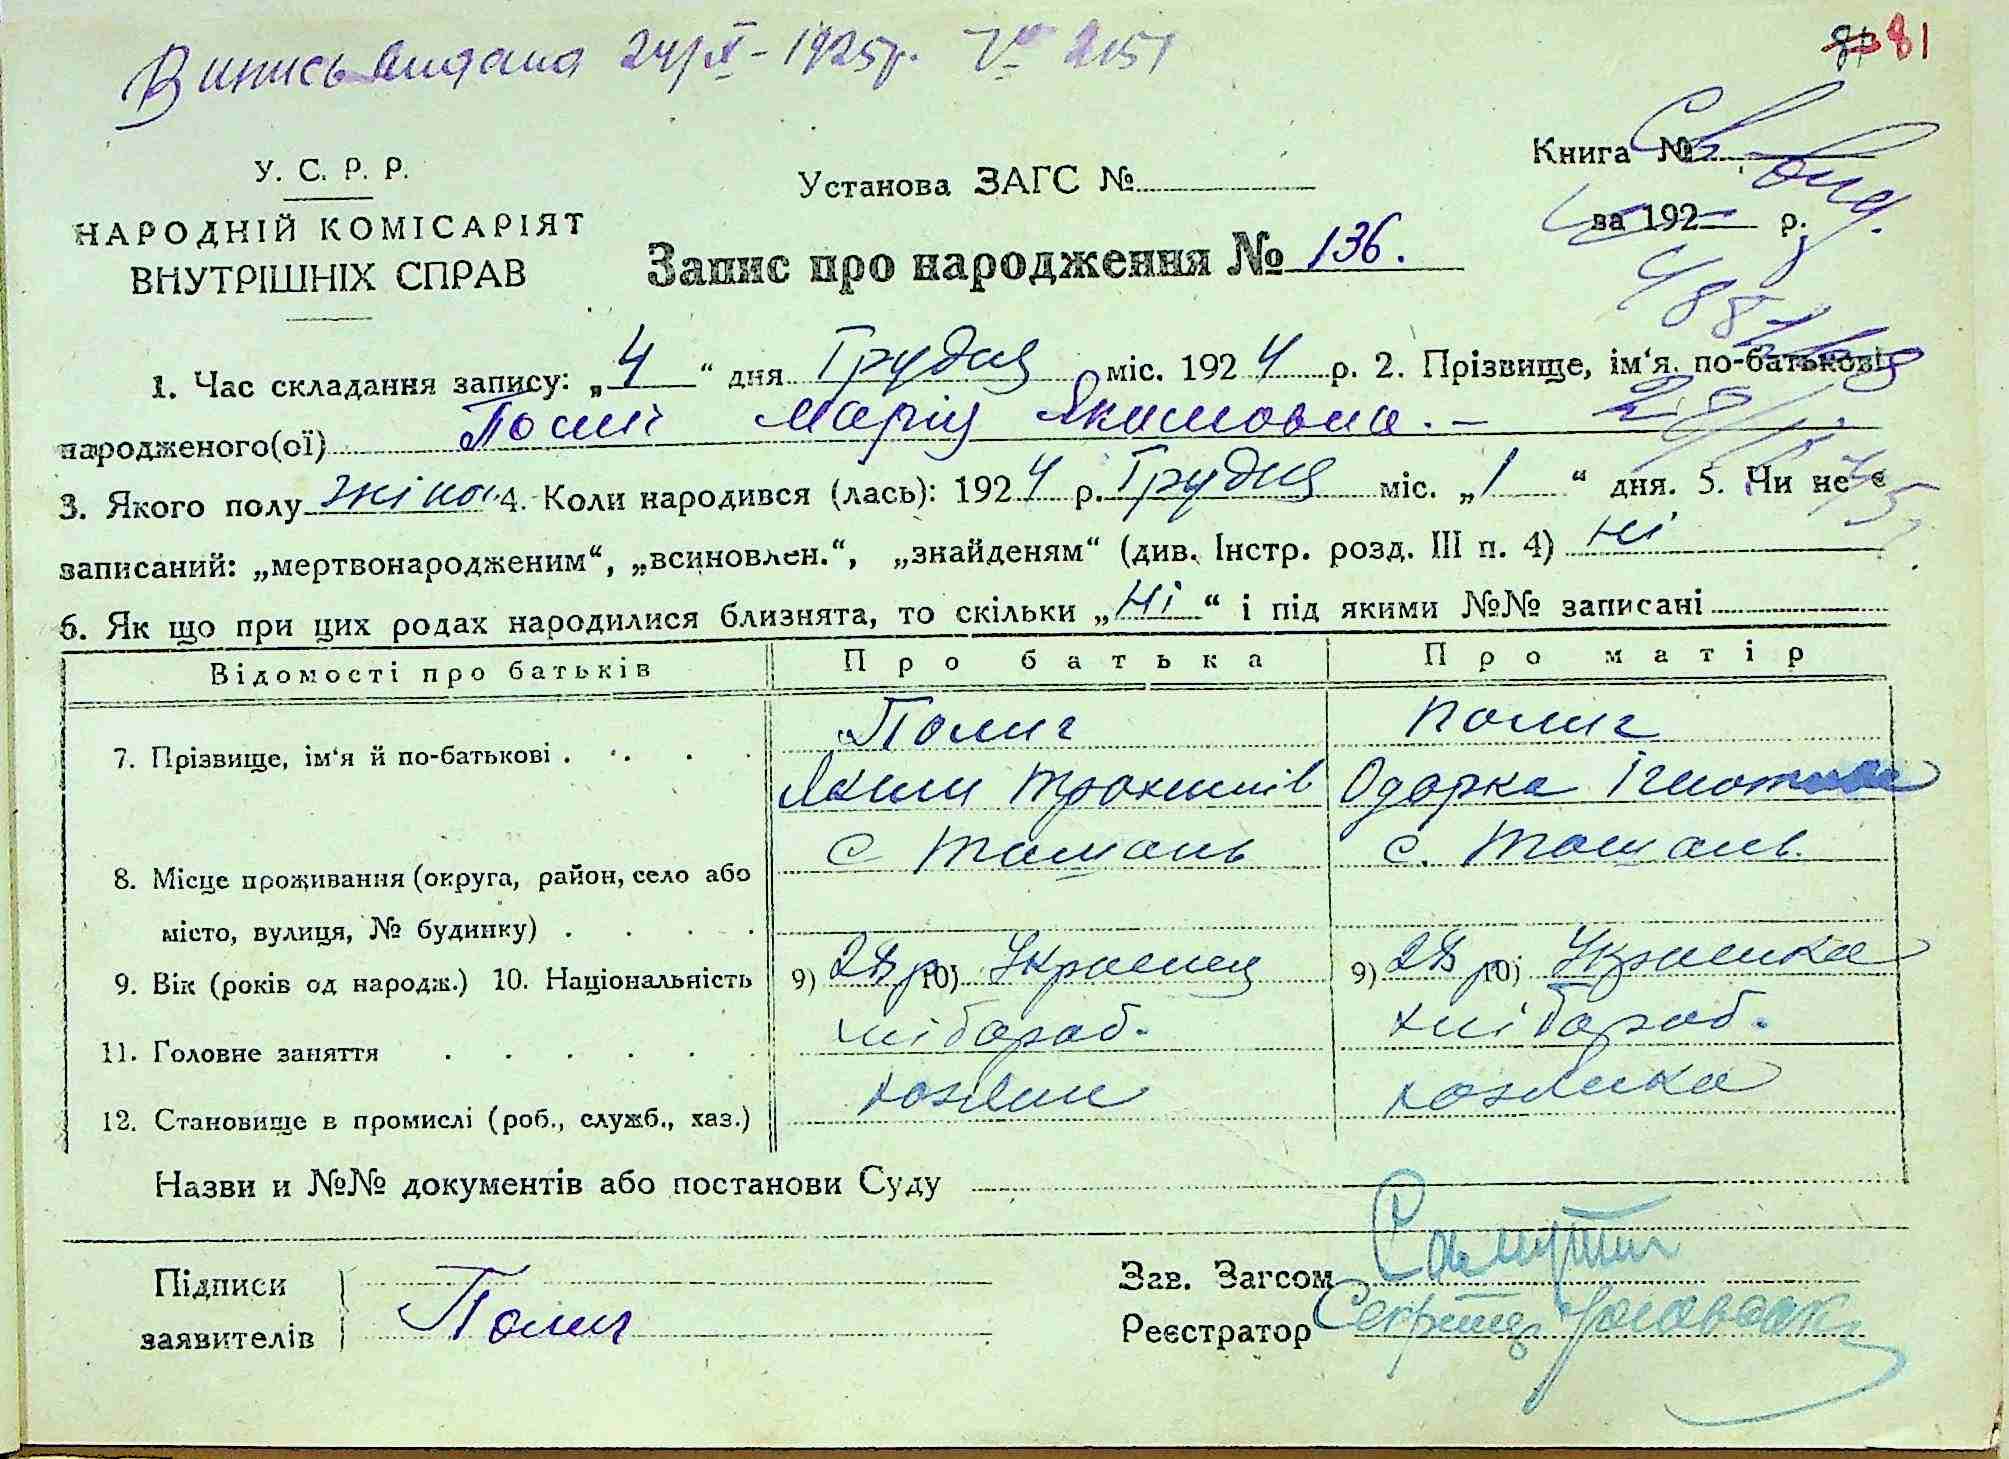 81
Випись видана 24/X-1925р. № 2151
У. С. Р. Р.
НАРОДНІЙ КОМІСАРІЯТ
ВНУТРІШНІХ СПРАВ
Установа ЗАГС №
Книга №
за 192 р.
Запис про народження № 136.
1. Час складання запису: „4“ дня Грудня міс. 1924 р. 2. Прізвище, ім‘я, по-батькові
народженого(ої) Полиг Марія Якимовна. –
3. Якого полу жіноч 4. Коли народився (лась): 1924 р. Грудня міс. „1“ дня. 5. Чи не є
записаний: „мертвонародженим“, „всиновлен.“, „знайденям“ (див. Інстр. розд. III п. 4) Ні
6. Як що при цих родах народилися близнята, то скільки „Ні“ і під якими №№ записані
Відомості про батьків Про батька Про матір
7. Прізвище, ім‘я й по-батькові . . . . Полиг Полиг
Яким Трохимів Одарка
8. Місце проживання (округа, район, село або с Ташань с. Ташань
місто, вулиця, № будинку) . . . .
9. Вік (років од народж.) 10. Національність 9) 28 р 10) Українец 9) 28 р 10) Українка
11. Головне заняття . . . . . . хлібороб. хлібороб.
12. Становище в промислі (роб., служб., хаз.) хозяин хозяика
Назви и №№ документів або постанови Суду
Підписи
заявителів Полиг
Зав. Загсом
Реєстратор